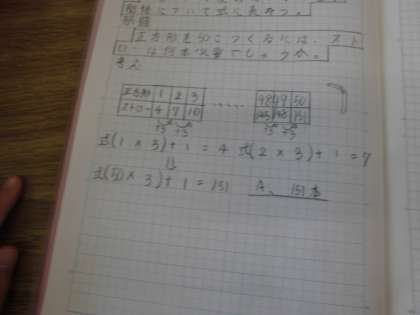 関係について式に表そう。
正方形を50こつくるには、スト
ローは何本必要でしょうか。
考え
正方形 1 2 3 …… 48 49 50
ストロー 4 7 10 145 148 151
+3 +3 +3 +3
式(1×3)+1=4 式(2×3)+1=7
式(50×3)+1=151 A、151本